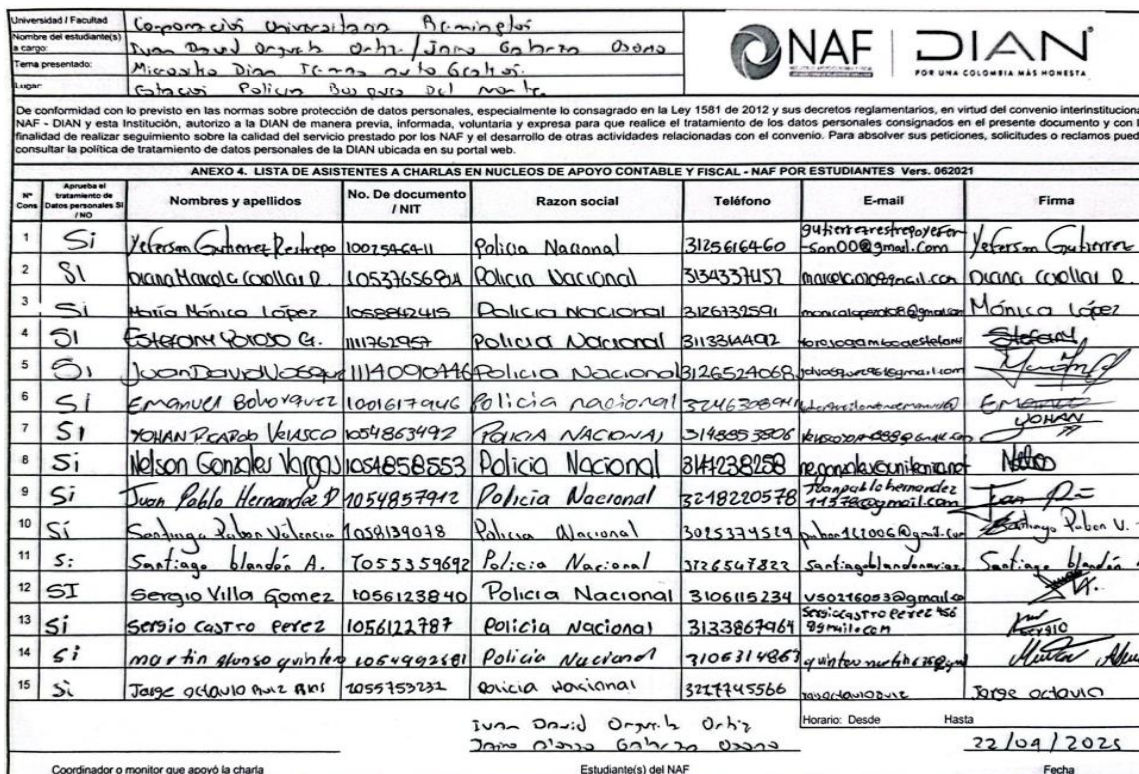 Universidad / Facultad Corporación Universitaria Remington
Nombre del estudiante(s) a cargo: Ivan David Orgurh Ortiz / Jairo Gabrera Osorio
Tema presentado: Micrositio Dian
Lugar: Estacion Policia Bosques Del Norte
NAF | DIAN
POR UNA COLOMBIA MÁS HONESTA
De conformidad con lo previsto en las normas sobre protección de datos personales, especialmente lo consagrado en la Ley 1581 de 2012 y sus decretos reglamentarios, en virtud del convenio interinstitucion
NAF - DIAN y esta Institución, autorizo a la DIAN de manera previa, informada, voluntaria y expresa para que realice el tratamiento de los datos personales consignados en el presente documento y con l
finalidad de realizar seguimiento sobre la calidad del servicio prestado por los NAF y el desarrollo de otras actividades relacionadas con el convenio. Para absolver sus peticiones, solicitudes o reclamos pued
consultar la política de tratamiento de datos personales de la DIAN ubicada en su portal web.
ANEXO 4. LISTA DE ASISTENTES A CHARLAS EN NUCLEOS DE APOYO CONTABLE Y FISCAL - NAF POR ESTUDIANTES Vers. 062021
N° Cons Aprueba el tratamiento de Datos personales SI / NO Nombres y apellidos No. De documento / NIT Razon social Teléfono E-mail Firma
1 Si Yeferson Gutierrez Restrepo 1002546411 Policia Nacional 3125616460 gutierrezrestrepoyefer-son00@gmail.com Yeferson Gutierrez
2 SI Diana Marcela Cuollar R. Policia Nacional 3134337452 Diana Cuollar R.
3 Si María Mónica López 1058842415 Policia Nacional 3126732591 Mónica López
4 SI Estefany G. 1111762957 Policia Nacional 3113344492 Stefany
5 Si Juan David Vasque 1114090446 Policia Nacional 3126524068
6 Si Emanuel Bohorquez 1001617946 Policia nacional
7 SI YOHAN RICARDO VELASCO 1054863492 POLICIA NACIONAL 3148853806 YOHAN
8 Si Nelson Gonzales Vargas 1054858553 Policia Nacional 3147238258 Nelson
9 Si Juan Pablo Hernandez P 1054857912 Policia Nacional 3218220578 Juanpablohernandez11378@gmail.com
10 Sí Santiago Pabon Valencia 1058139078 Policia Nacional 3025374529 Santiago Pabon V.
11 Si Santiago blandón A. 1055359692 Policia Nacional 3126547822 Santiagoblandonarias Santiago blandón
12 SI Sergio Villa Gomez 1056123840 Policia Nacional 3106115234 vs0276053@gmail.co
13 Si Sergio CASTRO Perez 1056122787 Policia Nacional 3133867964 Sergiocastroperez456@gmail.com Sergio
14 Si martin alonso quintero 1054992581 Policia Nacional 3106314867
15 Si Jorge octavio Ruiz Rios 1055753232 Policia Nacional 3217745566 Jorge octavio
Horario: Desde Hasta
Ivan David Orgurh Ortiz
Jairo Alonso Gabrera Osorio
22/04/2025
Coordinador o monitor que apoyó la charla Estudiante(s) del NAF Fecha